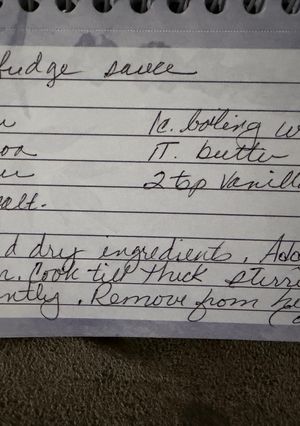 fudge sauce
1c. boling w
1T. butter
2 tsp vanill
salt.
d dry ingredients. Add
n. Cook till thick stirri
ntly. Remove from he